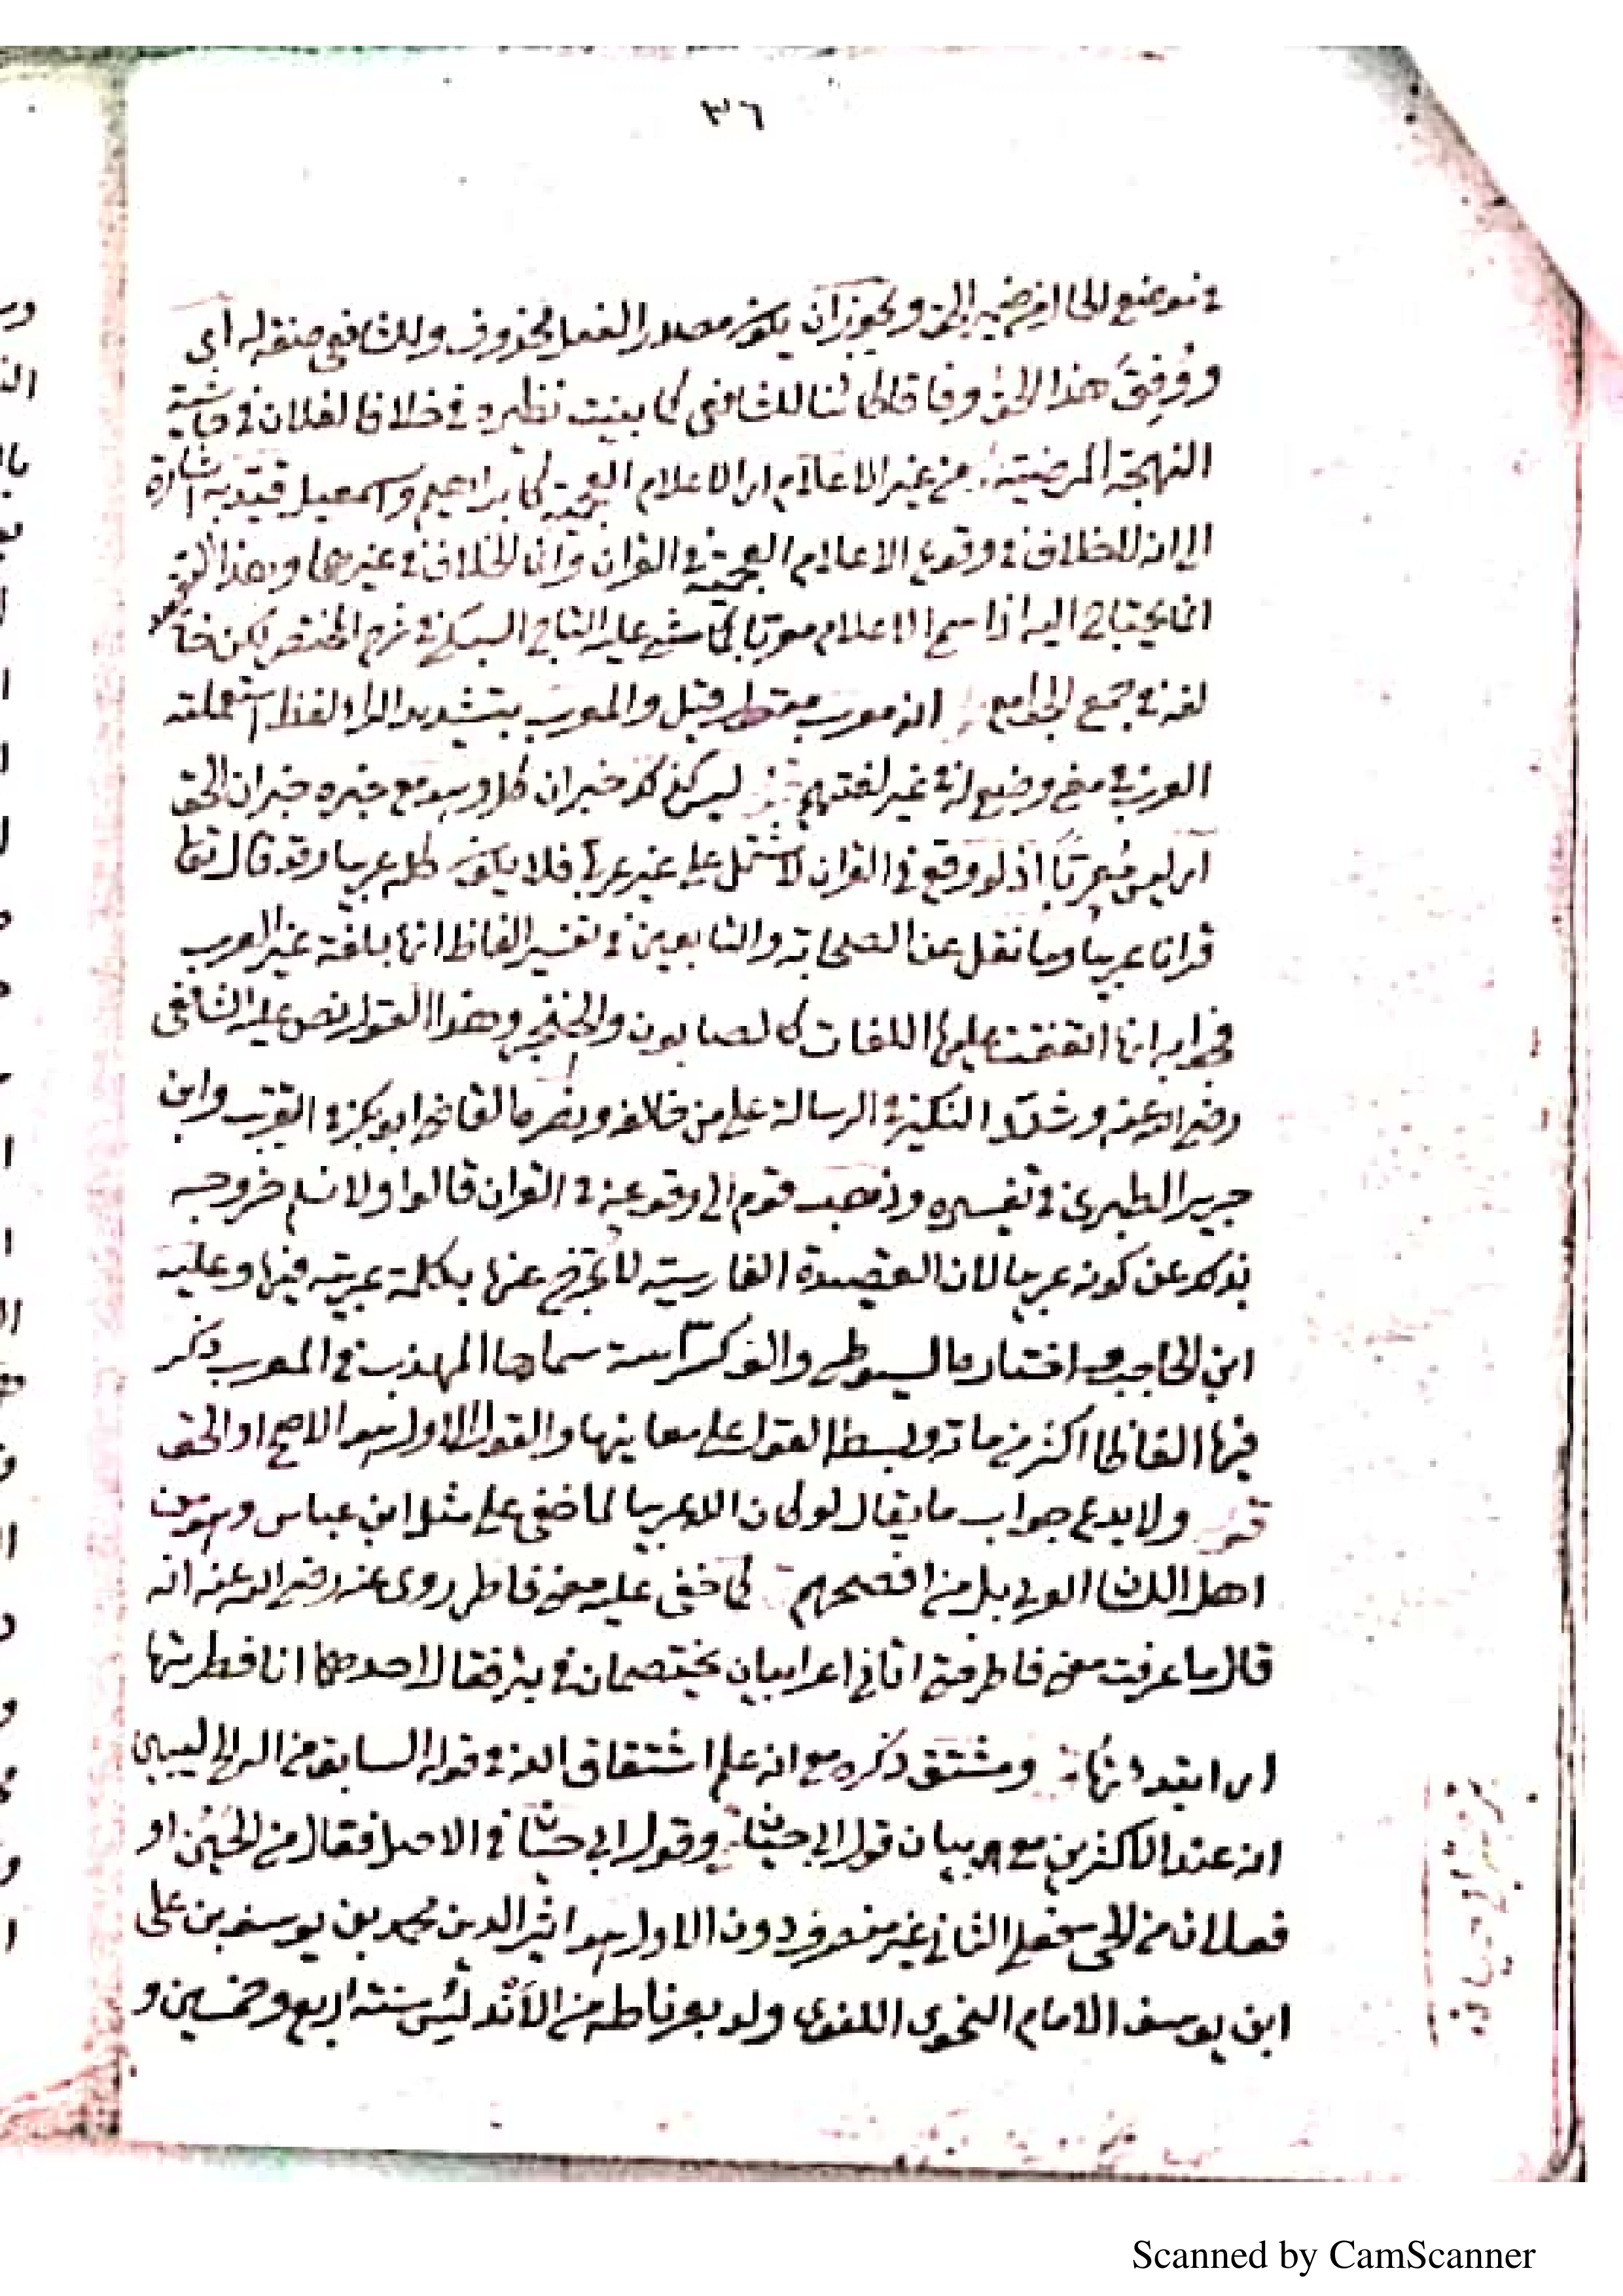 ٣٦
في موضع الحال من ضمير الحق ويجوز ان يكون مصدر الفعل محذوف وللشافعي صفة له أي
ووُفِق هذا الحق وفاقا كائنا للشافعي كما بينت نظيره في خلافا لفلان في حاشية
النهجة المرضية من غير الاعلام اى الاعلام العجمية كابراهيم واسمعيل قيد به اشارة
الى انه لا خلاف في وقوع الاعلام العجمية في القران وانما الخلاف في غيرها وهذا القيد
انما يحتاج اليه اذا سمى الاعلام معربا كما مشى عليه التاج السبكي في شرح المختصر لكن خا
لفه في جمع الجوامع انه معرب قيل والمعرب بتشديد الراء لفظ استعملته
العرب في معنى وضع له في غير لغتهم ليس كذلك خبر ان كل وهو مع خبره خبر ان الحق
اى ليس مُعربًا اذ لو وقع في القران لاشتمل على غير عربي فلا يكون كله عربيا وقد قال تعا
قرانا عربيا وما نقل عن الصحابة والتابعين في تفسير الفاظ انها بلغة غير العرب
فجوابه انها اتفقت عليها اللغات كالصابون والخنجر وهذا القول نص عليه الشافعي
رضي الله عنه وشدد النكير في الرسالة على من خالفه ونصره القاضي ابو بكر في التقريب وابن
جرير الطبرى في تفسيره وذهب قوم الى وقوعه في القران قالوا ولا نسلم خروجه
بذلك عن كونه عربيا لان القصيدة الفارسية لا تخرج عنها بكلمة عربية فيها وعليه
ابن الحاجب واختاره السيوطي والف كراسة سماها المهذب في المعرب ذكر
فيها الفاظا اكثر من ماة وبسط القول على معانيها والقول الاول هو الاصح او الحق
ولا يدع جواب ما يقال لو كان الله عربيا لما خفى على مثل ابن عباس وهو من
اهل اللسان العربي بل من افصحهم كما خفى عليه معنى فاطر روى عنه رضي الله عنه انه
قال ما عرفت معنى فاطر حتى اتاني اعرابيان يختصمان في بئر فقال احدهما انا فطرتها
اى ابتدأتها ومشتق ذكره مع انه علم اشتقاق الله في قوله السابق من اله
انه عند الاكثرين مع بيان قول ابي حيان وقول ابي حيان في الاصل فقال من الحين او
فعلان من الحي فعلى الثاني غير منصرف دون الاول هو اثير الدين محمد بن يوسف بن على
ابن يوسف الامام النحوى اللغوى ولد بغرناطه من الأندلس سنة اربع وخمسين و
ترجمة ابو حيان
Scanned by CamScanner